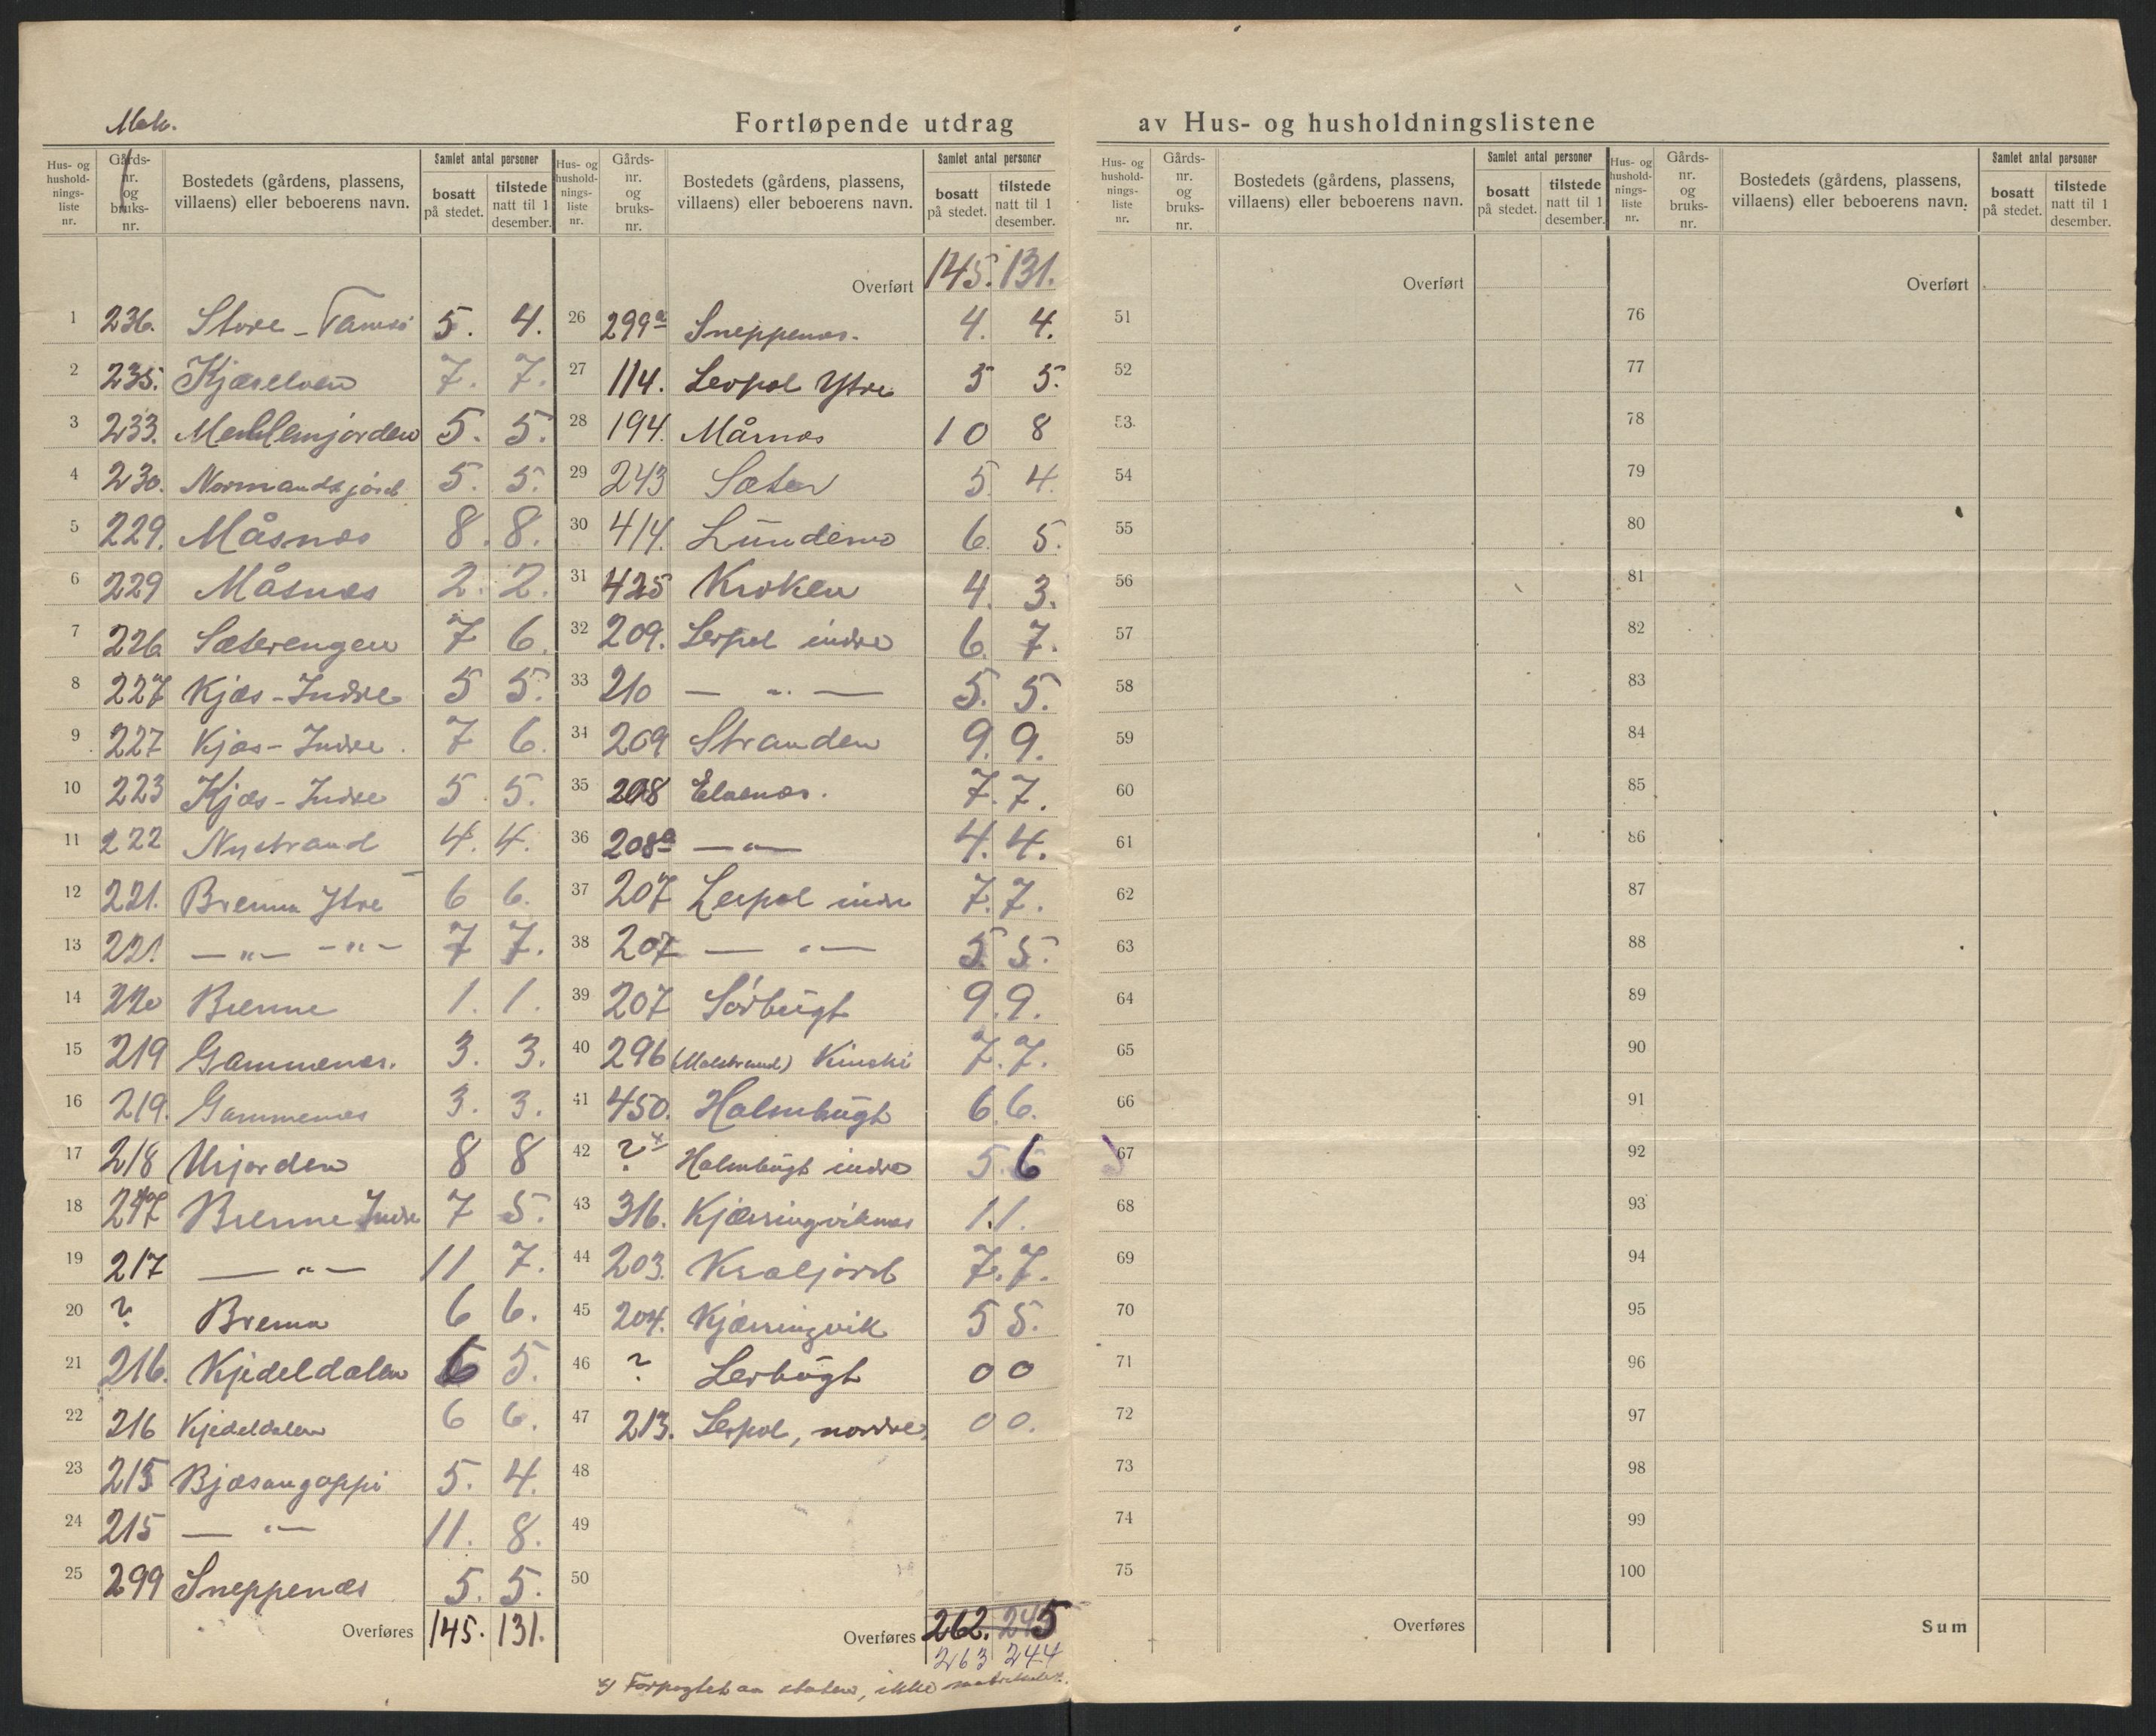 Mat.
Fortløpende utdrag av Hus- og husholdningslistene
Hus- og hushold-nings-liste nr. | Gårds-nr. og bruks-nr. | Bostedets (gårdens, plassens, villaens) eller beboerens navn. | Samlet antal personer | bosatt på stedet. | tilstede natt til 1 desember.
1 236. Store-Tamsø 5. 4.
2 235. Kjæselven 7. 7.
3 233. Mellemjorden 5. 5.
4 230. Normandsjord 5. 5.
5 229. Måsnes 8. 8.
6 229 Måsnes 2. 2.
7 226 Sæterengen 7 6.
8 227 Kjæs-Indre 5 5.
9 227 Kjæs-Indre. 7 6.
10 223 Kjæs-Indre 5. 5.
11 222 Nystrand 4. 4.
12 221. Brenna Ytre 6 6.
13 221 —"— —"— 7 7.
14 220 Brenne 1. 1.
15 219 Gammenes. 3. 3.
16 219. Gammenes 3. 3.
17 218 Urjorden 8 8
18 217 Brenne Indre 7 5.
19 217 —"— 11 7.
20 ? Brenna 6 6.
21 216. Kjedeldalen 6 5.
22 216 Kjedeldalen 6 6.
23 215 Bjæsangoppi 5. 4.
24 215 —"— 11. 8.
25 299 Sneppenæs 5. 5.
Overføres 145. 131.
Hus- og hushold-nings-liste nr. | Gårds-nr. og bruks-nr. | Bostedets (gårdens, plassens, villaens) eller beboerens navn. | Samlet antal personer | bosatt på stedet. | tilstede natt til 1 desember.
Overført 145. 131.
26 299a Sneppenes. 4. 4.
27 114. Leopol Ytre 5 5.
28 194. Mårnes 10 8
29 243 Sæter 5 4.
30 414. Lundemo 6. 5.
31 425 Kroken 4. 3.
32 209. Leirpol indre 6. 7.
33 210 — " — 5. 5.
34 209 Stranden 9. 9.
35 208 Elvenes. 7. 7.
36 208a — " — 4. 4.
37 207 Leipol indre 7. 7.
38 207 — " — 5. 5.
39 207 Sørbugt 9. 9.
40 296 (Molstrand) Kinski 7. 7.
41 450. Holmbugt 6 6.
42 ?x Holmbugt indre 5. 6
43 316. Kjærringviknes 1. 1.
44 203. Kvaljord 7. 7.
45 204. Kjærringvik 5 5.
46 ? Lerbugt 0 0
47 213. Lerpol, nordre, 0 0.
48
49
50
Overføres 262. 245
263 244
x) Forpagtet av staten, ikke matrikulert.
Hus- og hushold-nings-liste nr. | Gårds-nr. og bruks-nr. | Bostedets (gårdens, plassens, villaens) eller beboerens navn. | Samlet antal personer | bosatt på stedet. | tilstede natt til 1 desember.
Overført
51
52
53
54
55
56
57
58
59
60
61
62
63
64
65
66
67
68
69
70
71
72
73
74
75
Overføres
Hus- og hushold-nings-liste nr. | Gårds-nr. og bruks-nr. | Bostedets (gårdens, plassens, villaens) eller beboerens navn. | Samlet antal personer | bosatt på stedet. | tilstede natt til 1 desember.
Overført
76
77
78
79
80
81
82
83
84
85
86
87
88
89
90
91
92
93
94
95
96
97
98
99
100
Sum